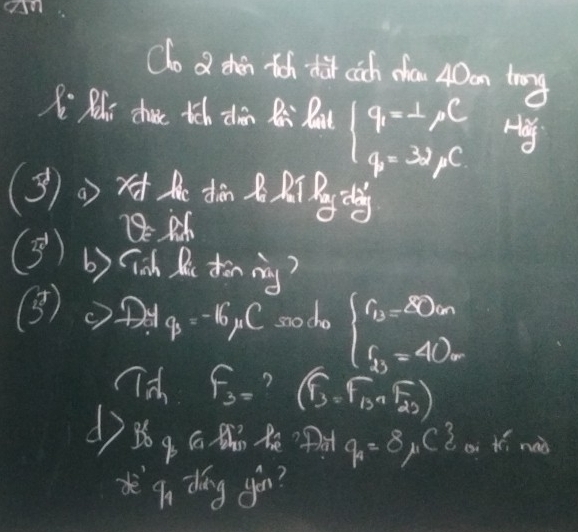 Cho 2 điện tích đặt cách nhau 40cm trong
k² khí được tích điện lần lượt { q₁ = 1 μC Hãy
q₂ = 32 μC.
(3đ) a) Xđ lực điện là hút hay đẩy.
Vẽ hình
(3đ) b) Tính lực điện này?
(3đ) c) Đặt q₃ = -16 μC sao cho { r₁₃ = 80cm
r₂₃ = 40cm
Tính F₃ = ? (F₃ = F₁₃ + F₂₃)
d) Bỏ q₃ ra khỏi hệ. Đặt q₄ = 8 μC vị trí nào
để q₄ đứng yên?